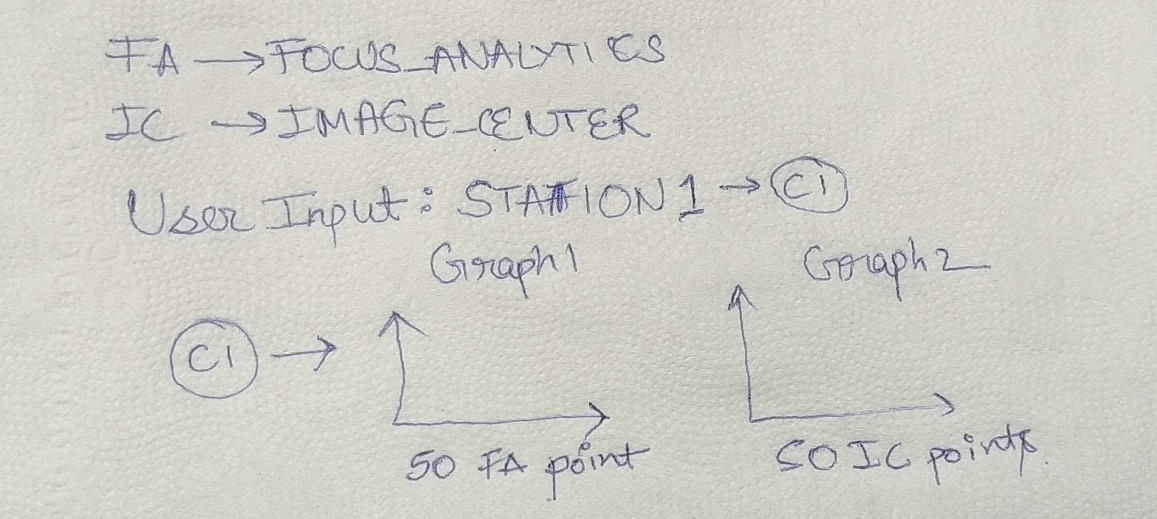 FA → FOCUS_ANALYTICS
IC → IMAGE_CENTER
User Input: STATION 1 → C1
Graph1 Graph2
C1 →
50 FA point 50 IC points.